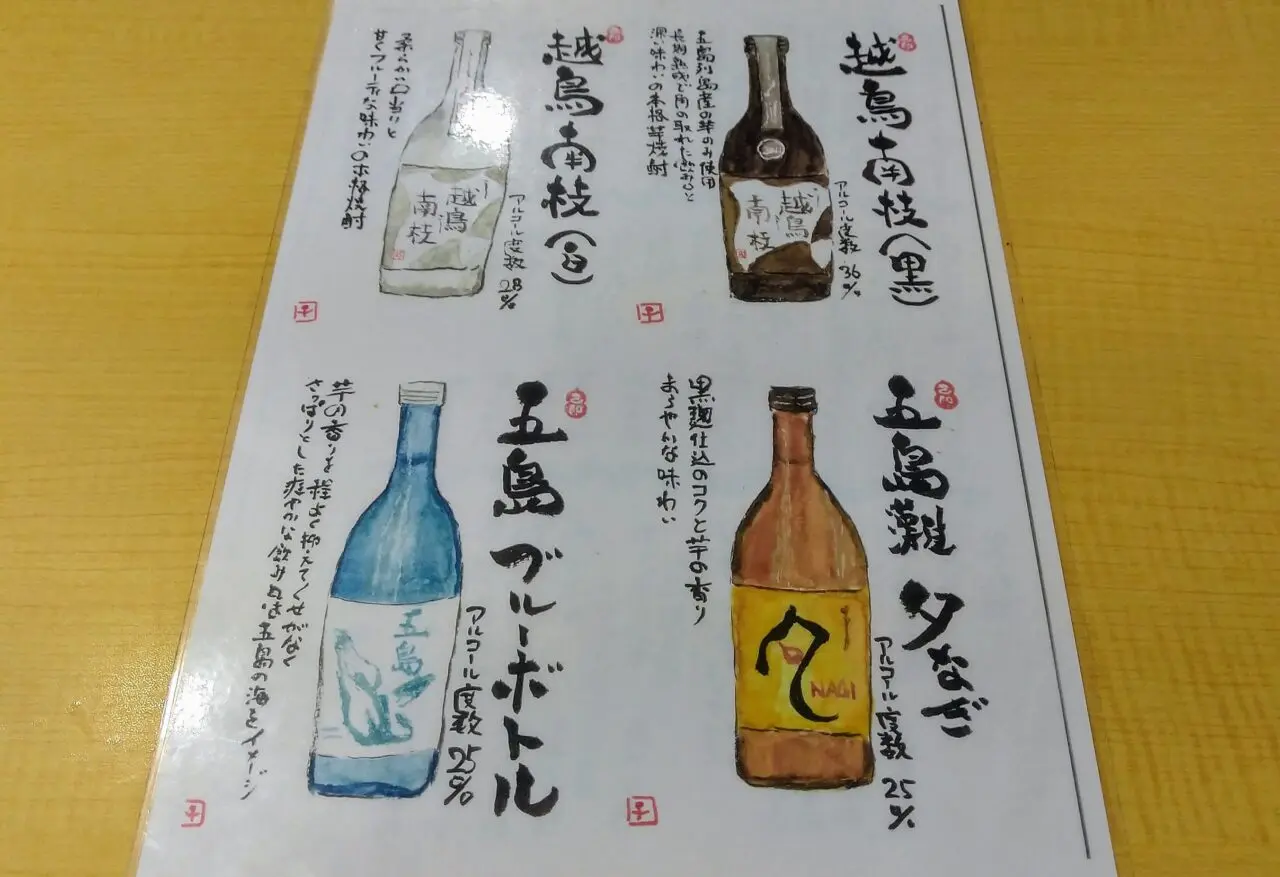 越鳥南枝(黒)
アルコール度数 36%
越鳥
南枝
五島列島産の芋のみ使用
長期熟成で角の取れた飲み口と
深い味わいの本格芋焼酎
越鳥南枝(白)
アルコール度数 28%
越鳥
南枝
柔らかい口当りと
甘くフルーティな味わいの本格焼酎
五島灘 夕なぎ
アルコール度数 25%
NAGI
黒麹仕込のコクと芋の香り
まろやかな味わい
五島 ブルーボトル
アルコール度数 25%
五島
芋の香りを程よく抑えてくせがなく
さっぱりとした爽やかな飲み口は五島の海をイメージ